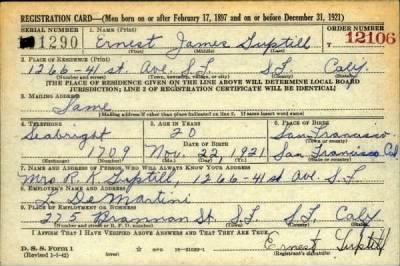 REGISTRATION CARD—(Men born on or after February 17, 1897 and on or before December 31, 1921)
SERIAL NUMBER 1. NAME (Print) ORDER NUMBER
1290 Ernest James Suptill T 12106
(First) (Middle) (Last)
2. PLACE OF RESIDENCE (Print)
1266-41 st Ave. S.F. S.F. Calif.
(Number and street) (Town, township, village, or city) (County) (State)
[THE PLACE OF RESIDENCE GIVEN ON THE LINE ABOVE WILL DETERMINE LOCAL BOARD
JURISDICTION; LINE 2 OF REGISTRATION CERTIFICATE WILL BE IDENTICAL]
3. MAILING ADDRESS
Same
[Mailing address if other than place indicated on line 2. If same insert word same]
4. TELEPHONE 5. AGE IN YEARS 6. PLACE OF BIRTH
Seabright 20 San Francisco
DATE OF BIRTH (Town or county)
1709 Nov. 22, 1921 San Francisco Cal
(Exchange) (Number) (Mo.) (Day) (Yr.) (State or country)
7. NAME AND ADDRESS OF PERSON WHO WILL ALWAYS KNOW YOUR ADDRESS
Mrs. R. R. Suptill, 1266-41st Ave. S.F.
8. EMPLOYER'S NAME AND ADDRESS
L. De Martini
9. PLACE OF EMPLOYMENT OR BUSINESS
275 Brannan St. S.F. S.F. Calif
(Number and street or R. F. D. number) (Town) (County) (State)
I AFFIRM THAT I HAVE VERIFIED ABOVE ANSWERS AND THAT THEY ARE TRUE.
D. S. S. Form 1
(Revised 1-1-42) (over)
Ernest Suptill
(Registrant's signature)